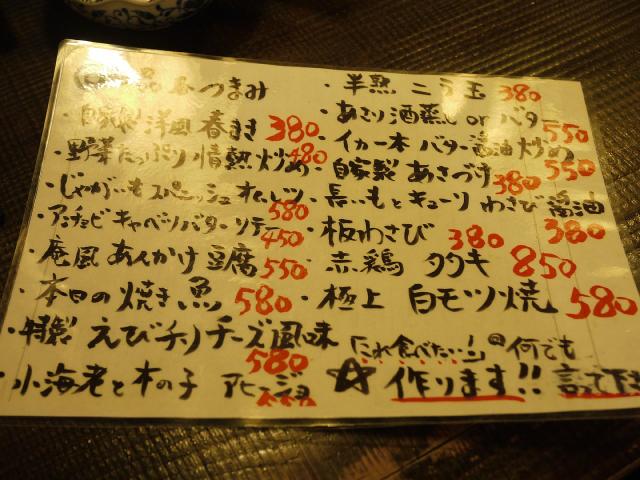 一品おつまみ
・自家製洋風春まき 380
・野菜たっぷり情熱炒め 480
・じゃがいもスパニッシュオムレツ 580
・アンチョビキャベツバターソテー 450
・庵風あんかけ豆腐 550
・本日の焼き魚 580
・特製えびチリチーズ風味 580
・小海老と木の子
・半熟ニラ玉 380
・あさり酒蒸し or バター 550
・イカ一本バター醤油炒め 550
・自家製あさづけ 380
・長いもとキューリわさび醤油 380
・板わさび 380
・赤鶏タタキ 850
・極上白モツ焼 580
これ食べたい!!
何でも
☆作ります!! 言って下さ